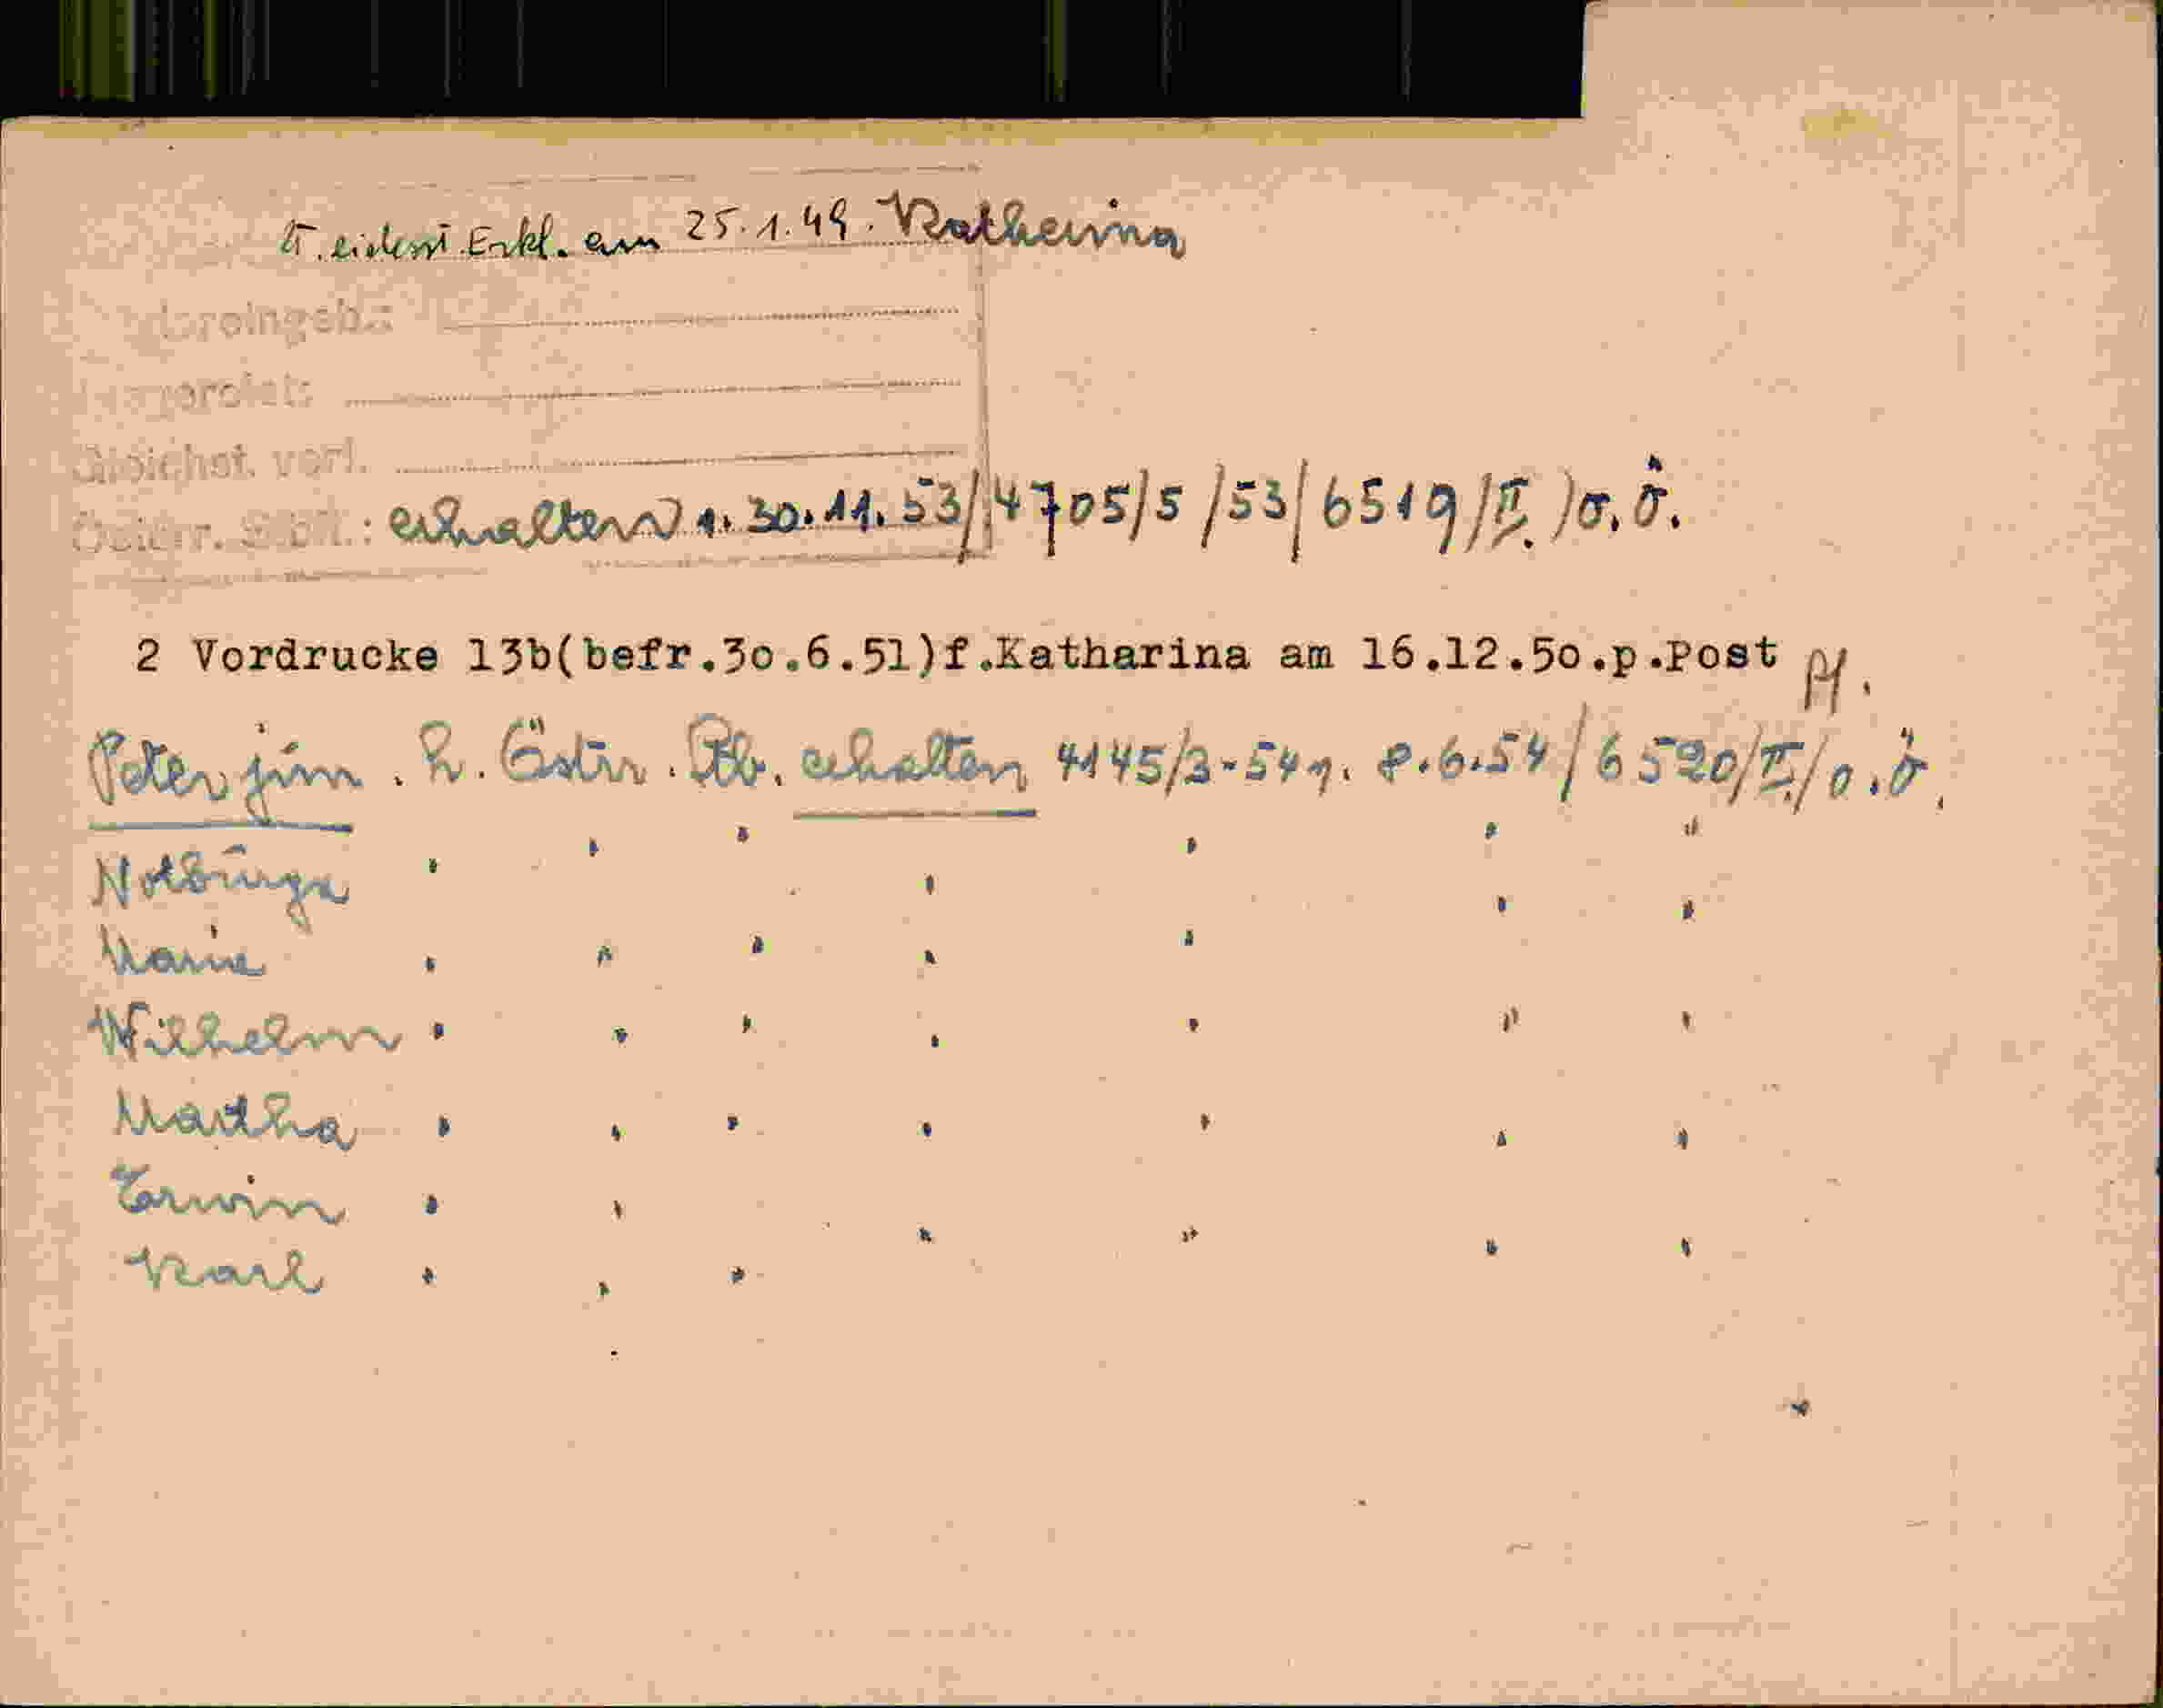 eidesst. Erkl. am 25.1.49. Katharina
Gleichst. verl.
Österr. Stb.: erhalten 1. 30.11.53/4705/5/53/6519/II./o.ö.
2 Vordrucke 13b(befr.30.6.51)f.Katharina am 16.12.50.p.Post
Peter jun. h. Östr. Stb. erhalten 4145/3-54 1. 8.6.54/6520/II./o.ö.
Notburga " " " " " " "
Marie " " " " " " "
Wilhelm " " " " " " "
Martha " " " " " " "
Erwin " " " " " "
Karl " " "